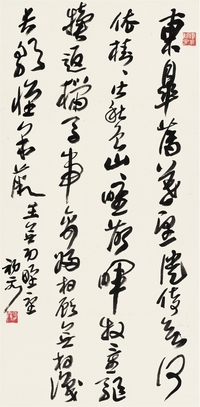 東皋薄暮望徙倚欲何
依樹々皆秋色山々唯落暉牧童驅
犢返獵馬帶禽歸相顧無相識
長歌懷采薇
王無功野望